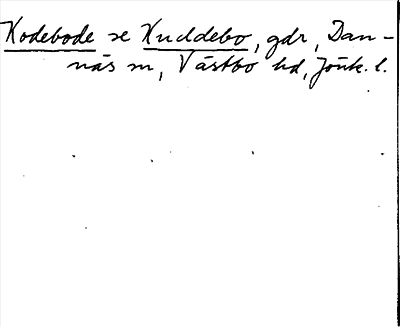 Kodebode se Kuddebo, gdr, Dan-
näs sn, Västbo hd, Jönk. l.